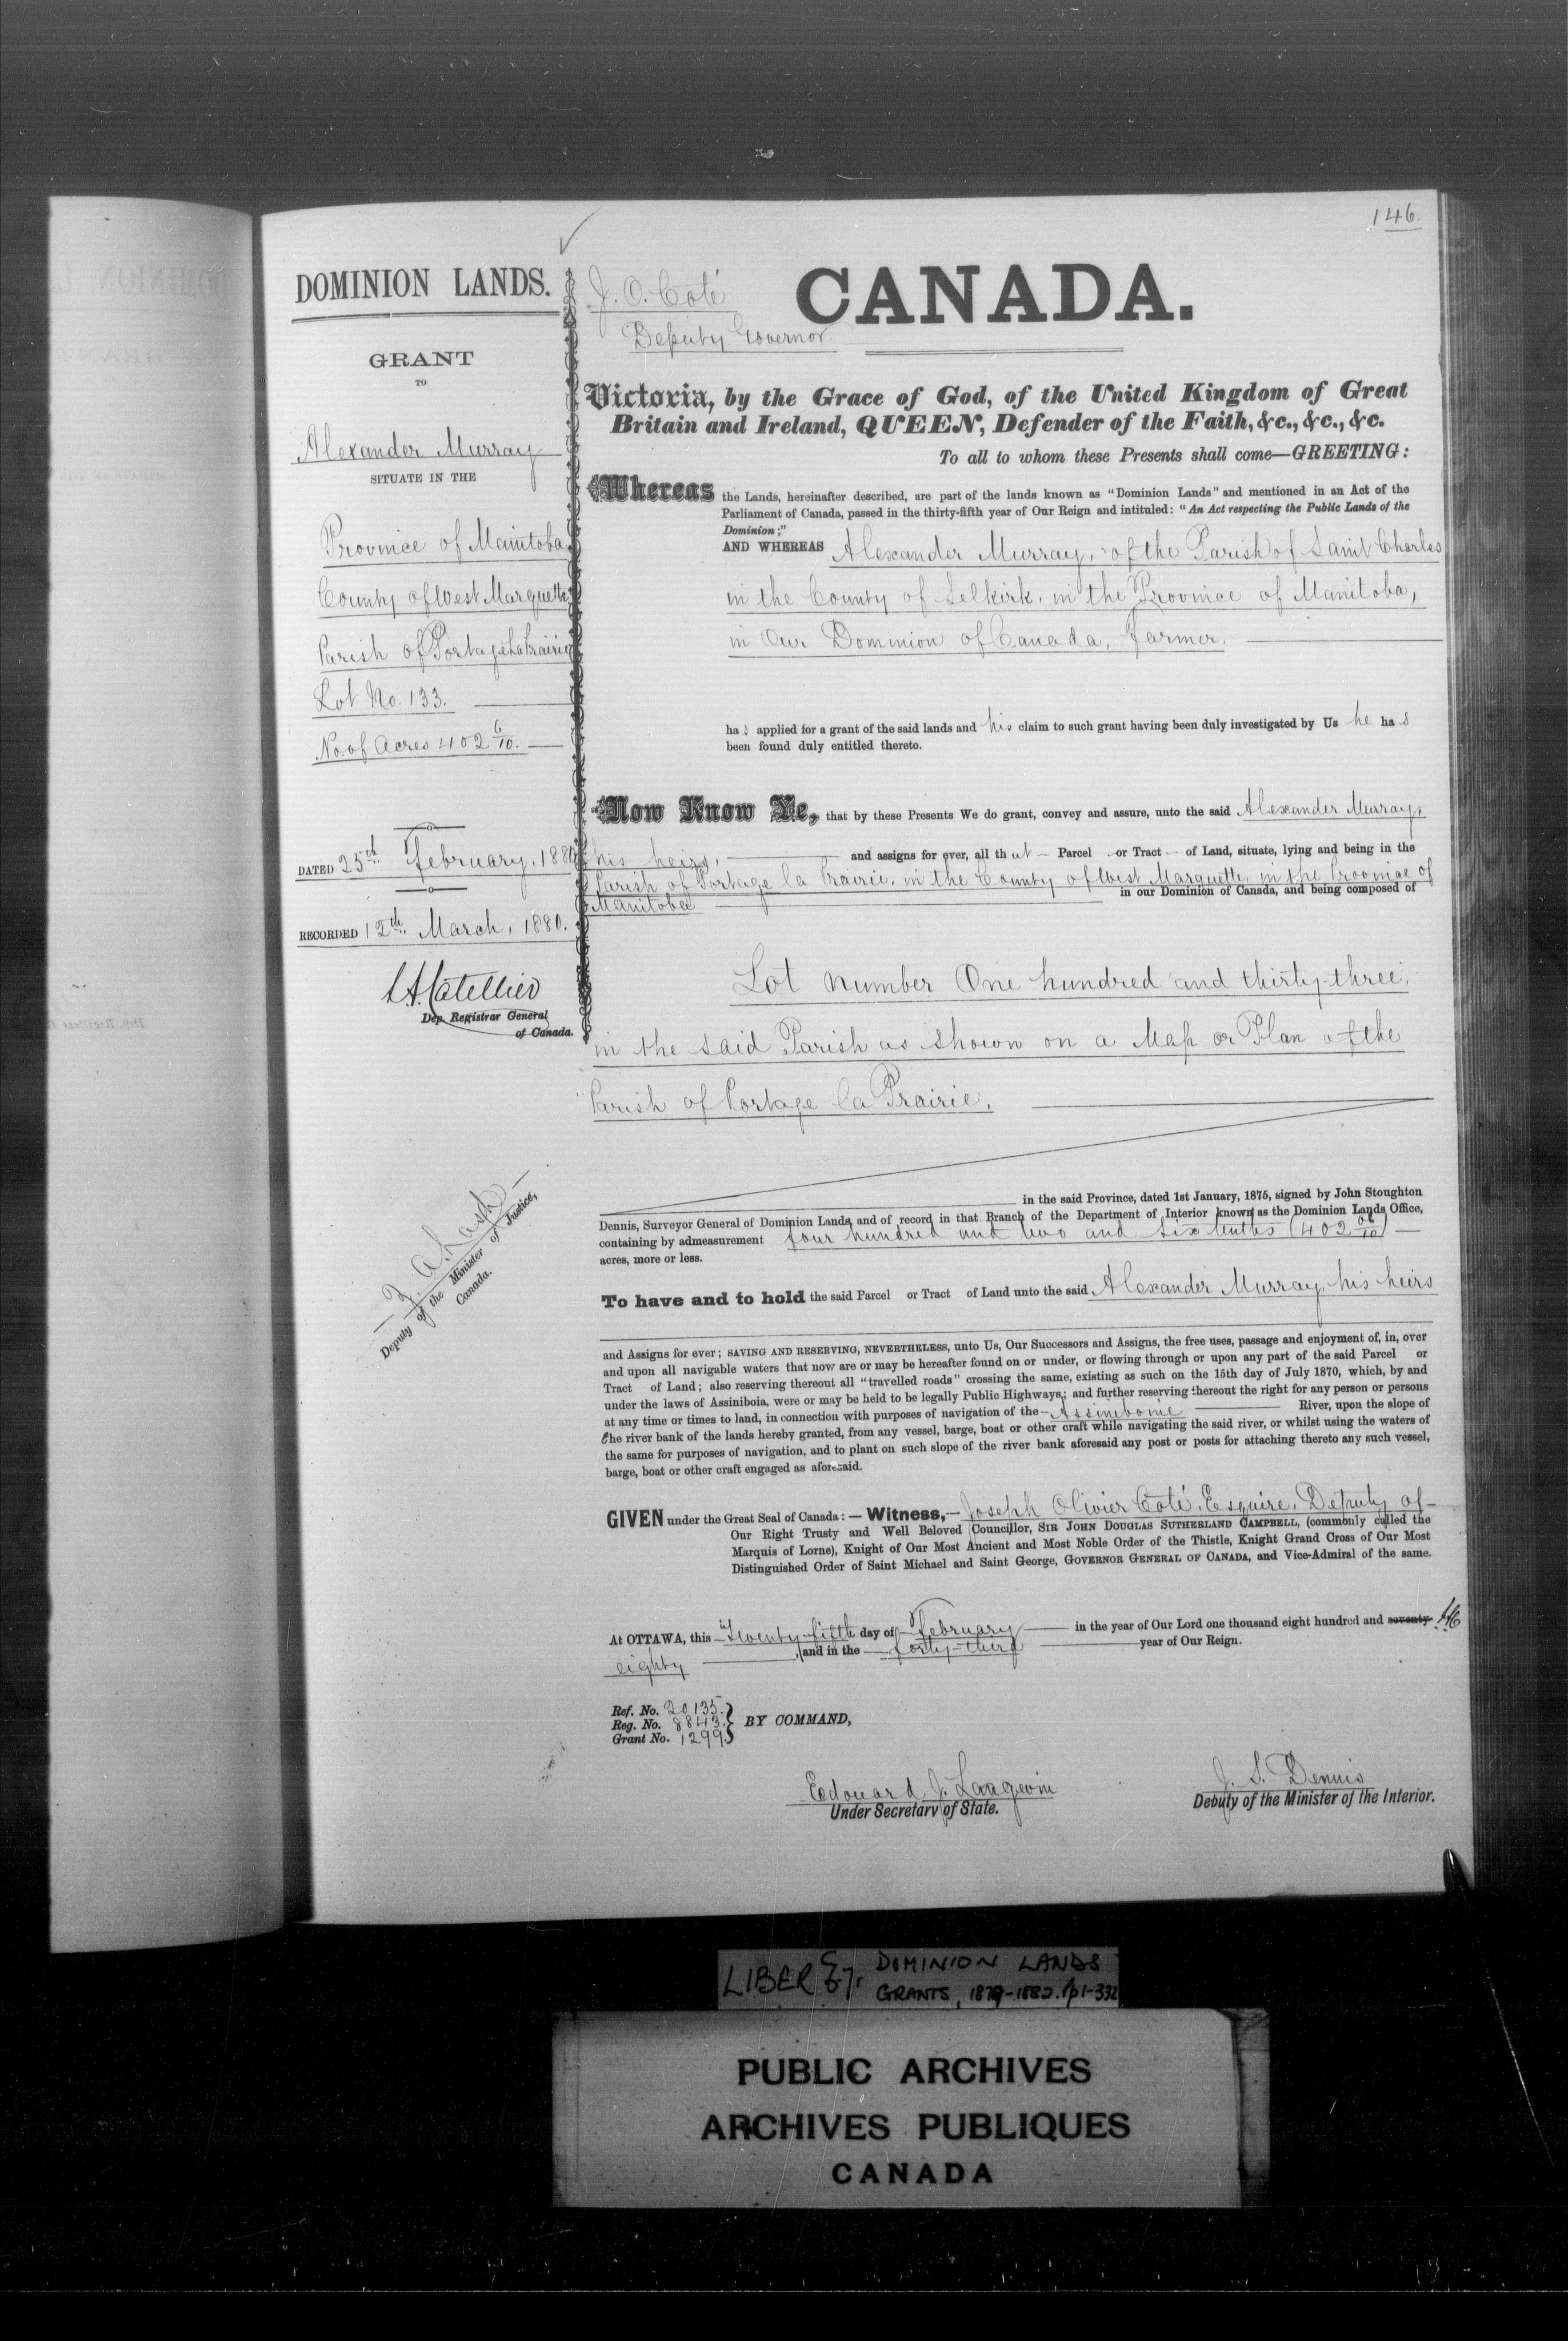 146.
DOMINION LANDS.
GRANT
TO
Alexander Murray
SITUATE IN THE
Province of Manitoba
County of West Marquette
Parish of Portage La Prairie
Lot No. 133.
No. of Acres 402 6/10.
DATED 25th February, 1880
RECORDED 12th March, 1880.
Dep. Registrar General
of Canada.
Z. A. Lash
Deputy of the Minister of Justice,
Canada.
J. O. Coté
Deputy Governor
CANADA.
Victoria, by the Grace of God, of the United Kingdom of Great
Britain and Ireland, QUEEN, Defender of the Faith, &c., &c., &c.
To all to whom these Presents shall come—GREETING:
Whereas the Lands, hereinafter described, are part of the lands known as "Dominion Lands" and mentioned in an Act of the
Parliament of Canada, passed in the thirty-fifth year of Our Reign and intituled: "An Act respecting the Public Lands of the
Dominion;"
AND WHEREAS Alexander Murray, of the Parish of Saint Charles
in the County of Selkirk, in the Province of Manitoba,
in Our Dominion of Canada, Farmer.
has applied for a grant of the said lands and his claim to such grant having been duly investigated by Us he has
been found duly entitled thereto.
Now Know Ye, that by these Presents We do grant, convey and assure, unto the said Alexander Murray,
his heirs, and assigns for ever, all that Parcel or Tract of Land, situate, lying and being in the
Parish of Portage la Prairie, in the County of West Marquette, in the Province of
Manitoba in our Dominion of Canada, and being composed of
Lot number One hundred and thirty-three,
in the said Parish as shown on a Map or Plan of the
Parish of Portage la Prairie,
in the said Province, dated 1st January, 1875, signed by John Stoughton
Dennis, Surveyor General of Dominion Lands, and of record in that Branch of the Department of Interior known as the Dominion Lands Office,
containing by admeasurement four hundred and two and six tenths (402 6/10)
acres, more or less.
To have and to hold the said Parcel or Tract of Land unto the said Alexander Murray, his heirs
and Assigns for ever; SAVING AND RESERVING, NEVERTHELESS, unto Us, Our Successors and Assigns, the free uses, passage and enjoyment of, in, over
and upon all navigable waters that now are or may be hereafter found on or under, or flowing through or upon any part of the said Parcel or
Tract of Land; also reserving thereout all "travelled roads" crossing the same, existing as such on the 15th day of July 1870, which, by and
under the laws of Assiniboia, were or may be held to be legally Public Highways; and further reserving thereout the right for any person or persons
at any time or times to land, in connection with purposes of navigation of the Assiniboine River, upon the slope of
the river bank of the lands hereby granted, from any vessel, barge, boat or other craft while navigating the said river, or whilst using the waters of
the same for purposes of navigation, and to plant on such slope of the river bank aforesaid any post or posts for attaching thereto any such vessel,
barge, boat or other craft engaged as aforesaid.
GIVEN under the Great Seal of Canada:—Witness,—Joseph Olivier Coté, Esquire, Deputy of
Our Right Trusty and Well Beloved Councillor, SIR JOHN DOUGLAS SUTHERLAND CAMPBELL, (commonly called the
Marquis of Lorne), Knight of Our Most Ancient and Most Noble Order of the Thistle, Knight Grand Cross of Our Most
Distinguished Order of Saint Michael and Saint George, GOVERNOR GENERAL OF CANADA, and Vice-Admiral of the same.
At OTTAWA, this Twenty-fifth day of February in the year of Our Lord one thousand eight hundred and seventy
eighty, and in the forty-third year of Our Reign.
Ref. No. 20135.
Reg. No. 8843.
Grant No. 1299.
BY COMMAND,
Edouard J. Langevin
Under Secretary of State.
J. S. Dennis
Deputy of the Minister of the Interior.
LIBER
DOMINION LANDS
GRANTS, 1879-1882. pp1-332
PUBLIC ARCHIVES
ARCHIVES PUBLIQUES
CANADA